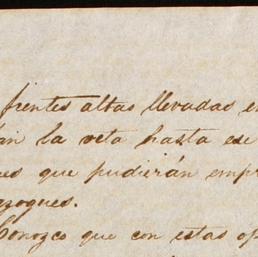 frentes altas llevadas en
la veta hasta ese
que pudierán empr
azogues.
Conozco que con estas op